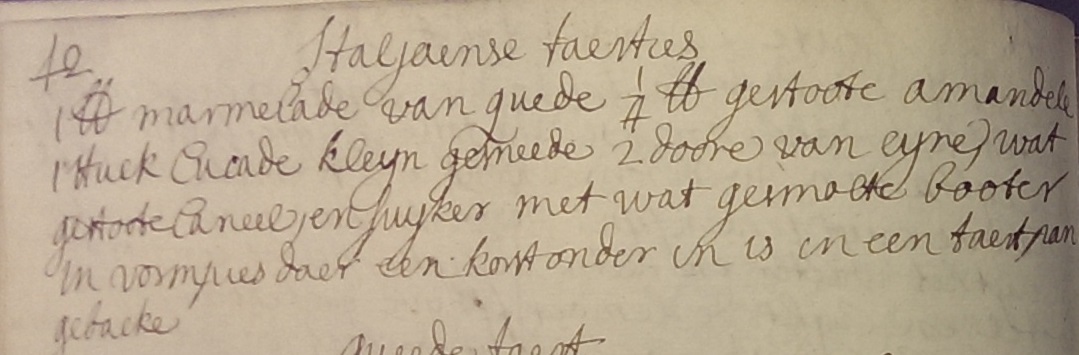 12 Italjaense taerties
1 ℔ marmelade van quede 1/4 ℔ gestoote amandele
1 stuck Sucade kleyn gesneede 2 doore van eyre wat
gestoote Caneel en suyker met wat gesmolte booter
in vormpies daer een korst onder in is in een taertpan
gebacke
quede taert